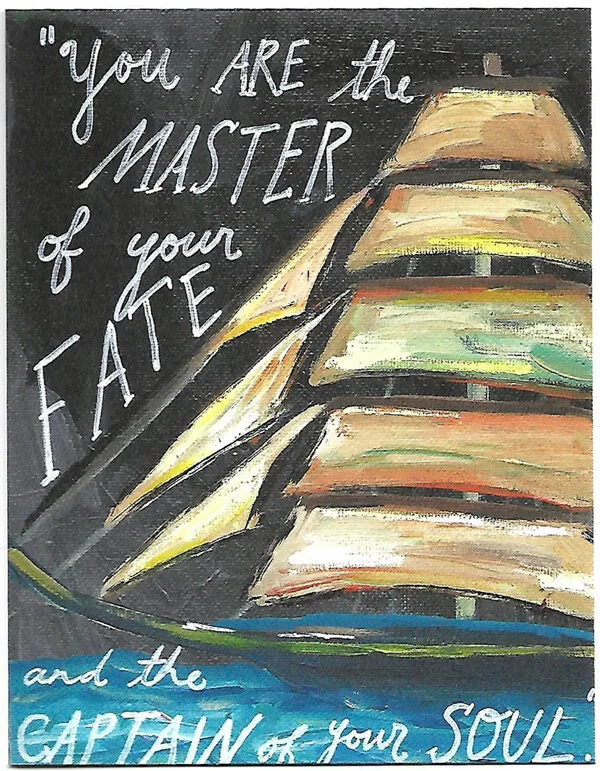 "You ARE the
MASTER
of your
FATE
and the
CAPTAIN of your SOUL."